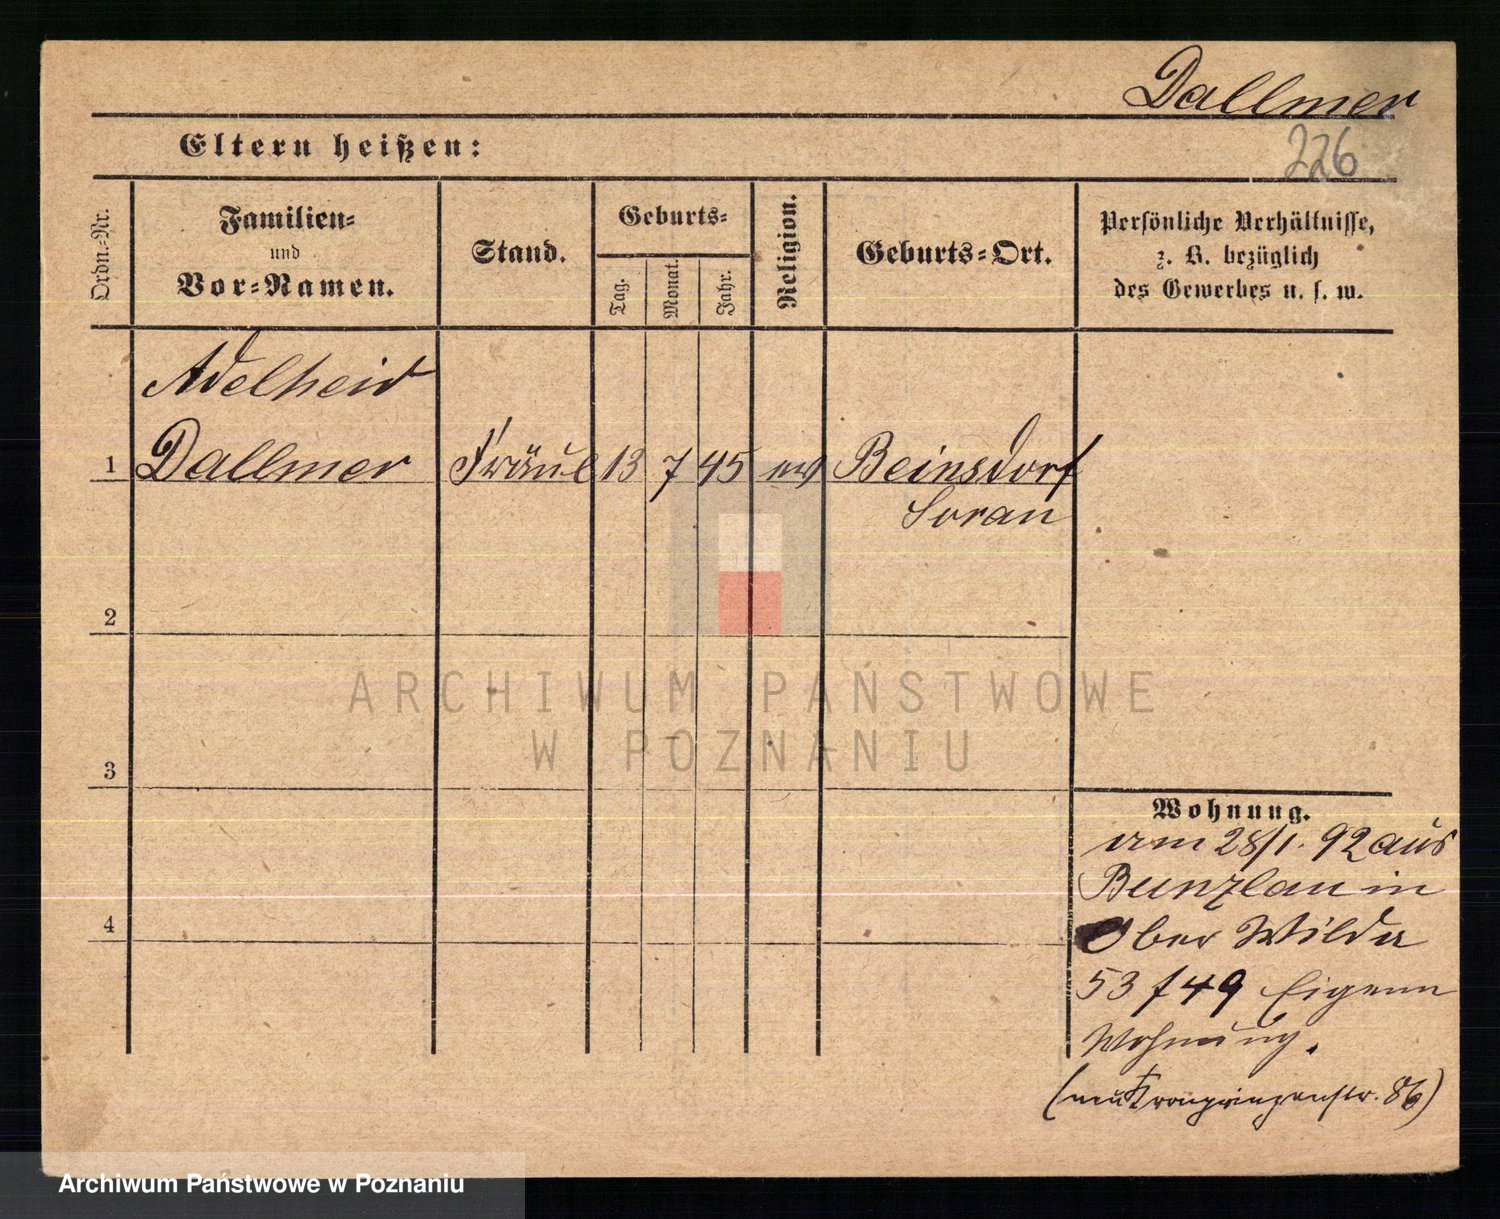 Dallmer
Eltern heißen:
226
Ordn.-Nr.
Familien-
und
Vor-Namen.
Stand.
Geburts-
Tag.
Monat.
Jahr.
Religion.
Geburts-Ort.
Persönliche Verhältnisse,
z. B. bezüglich
des Gewerbes u. s. w.
Adelheid
1 Dallmer Fräul 13 7 45 ev Beinsdorf
Soran
2
ARCHIWUM PAŃSTWOWE
W POZNANIU
3
Wohnung.
am 28/1. 92 aus
Bunzlau in
4
Ober Wilda
53 / 49 Eigene
Wohnung.
(neu Kronprinzenstr. 86)
Archiwum Państwowe w Poznaniu